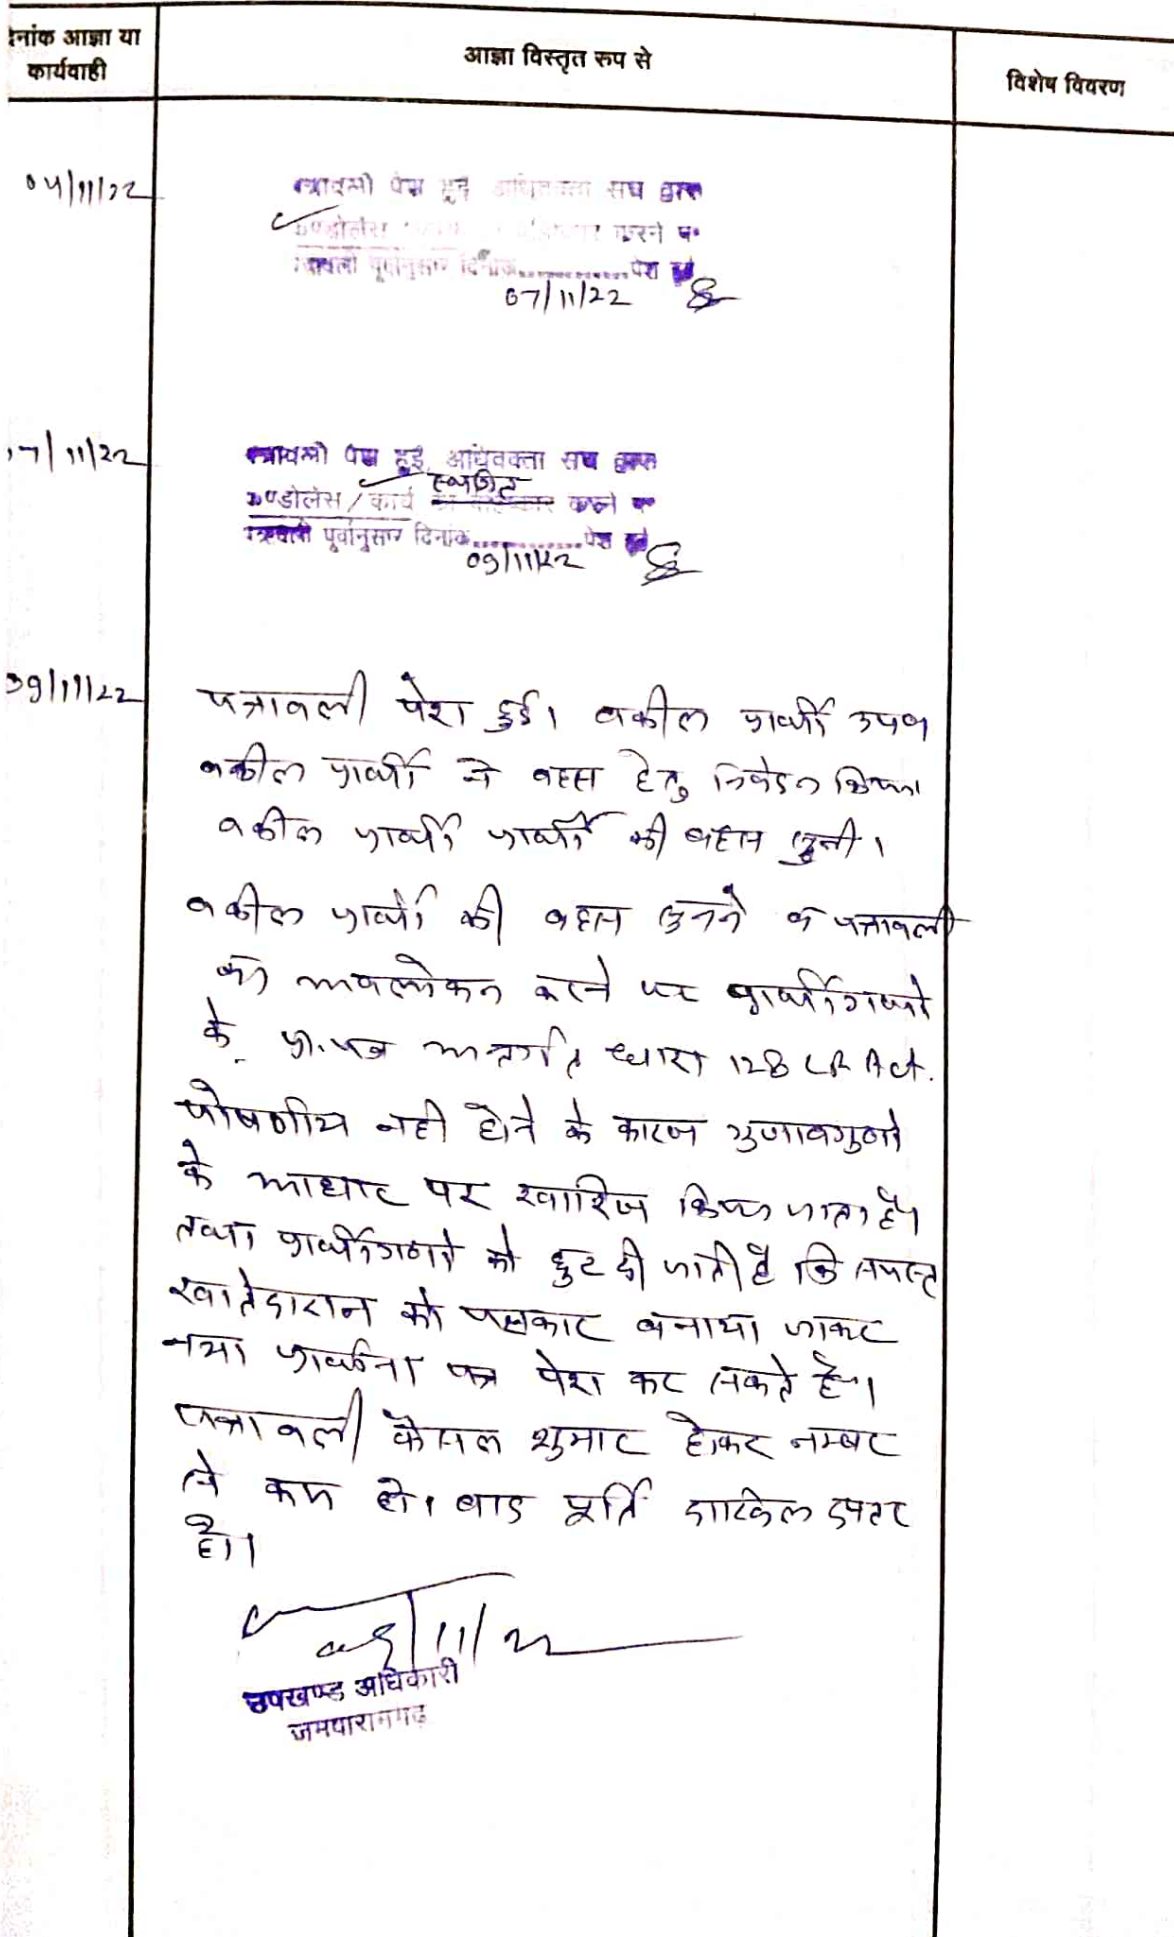 दिनांक आज्ञा या
कार्यवाही
आज्ञा विस्तृत रुप से
विशेष विवरण
04/11/22
पत्रावली पेश हुई अधिवक्ता संघ द्वारा
कण्डोलेंस करने पर
पत्रावली पूर्वानुसार दिनांक..............पेश हो
07/11/22
07/11/22
पत्रावली पेश हुई, अधिवक्ता संघ द्वारा
स्थगित
कण्डोलेंस / कार्य का बहिष्कार करने पर
पत्रावली पूर्वानुसार दिनांक..............पेश हो
09/11/22
09/11/22
पत्रावली पेश हुई। वकील प्रार्थी उप०
वकील प्रार्थी ने बहस हेतु निवेदन किया
वकील प्रार्थी प्रार्थी की बहस सुनी।
वकील प्रार्थी की बहस सुनने व पत्रावली
का अवलोकन करने पर प्रार्थीगणो
के प्रा.पत्र अन्तर्गत धारा 128 LR Act.
पोषणीय नही होने के कारण गुणावगुणो
के आधार पर खारिज किया जाता है।
तथा प्रार्थीगणो को छुट दी जाती है कि समस्त
खातेदारान को पक्षकार बनाया जाकर
नया प्रार्थना पत्र पेश कर सकते है।
पत्रावली फैसल शुमार होकर नम्बर
से कम हो। बाद पूर्ति दाखिल दफ्तर
हो।
09/11/22
उपखण्ड अधिकारी
जमवारामगढ़